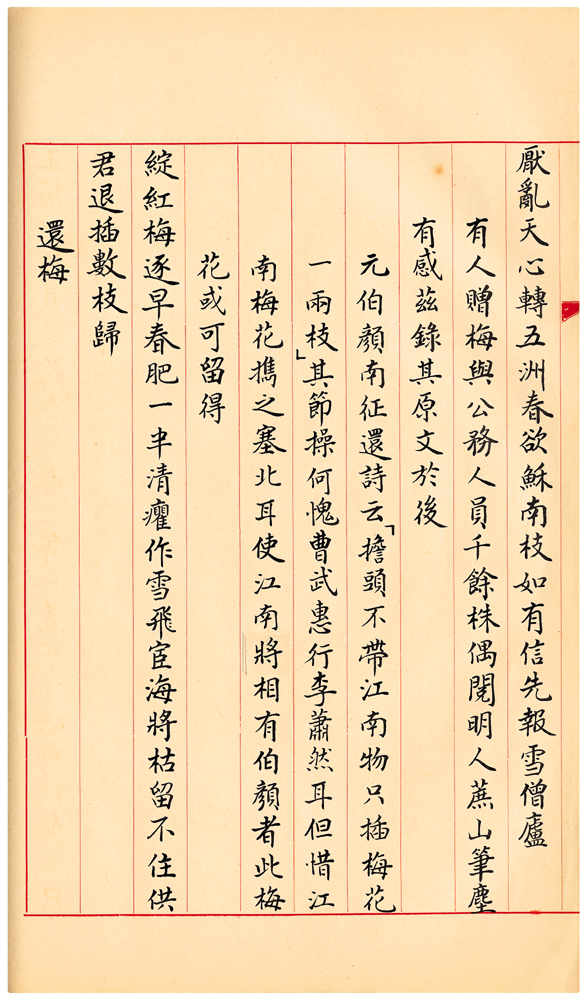 厭亂天心轉五洲春欲穌南枝如有信先報雪僧廬
有人贈梅與公務人員千餘株偶閱明人蕉山筆麈
有感茲錄其原文於後
元伯顏南征還詩云「擔頭不帶江南物只插梅花
一兩枝」其節操何愧曹武惠行李蕭然耳但惜江
南梅花攜之塞北耳使江南將相有伯顏者此梅
花或可留得
綻紅梅逐早春肥一半清癯作雪飛宦海將枯留不住供
君退插數枝歸
還梅